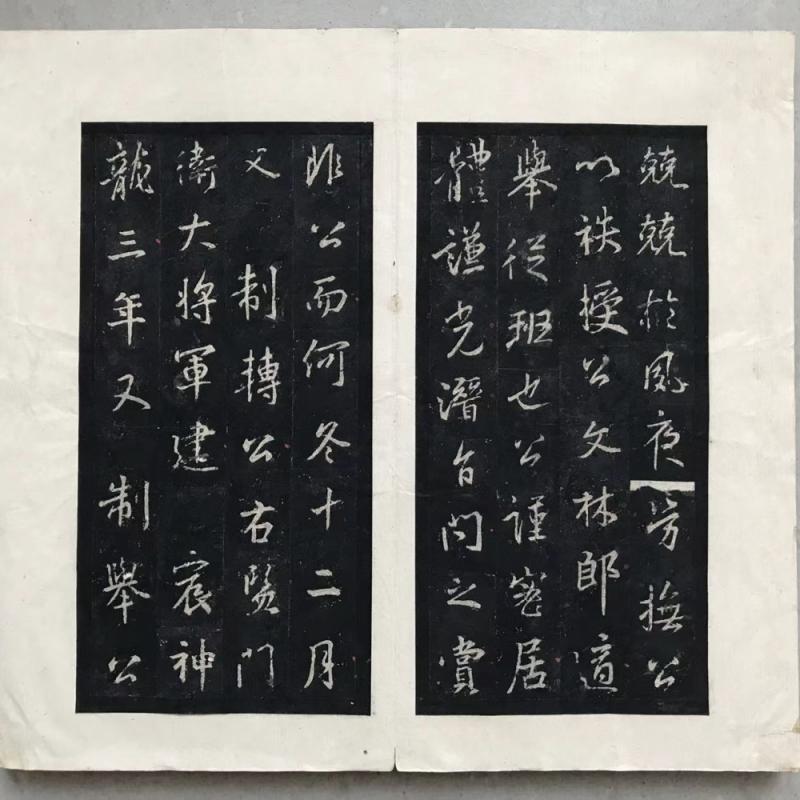 兢兢於夙夜 撫公
以袟授公文林郎適
舉從班也公謹密居
體謙光潛旨問之賞
非公而何冬十二月
又 制轉公右監門
衛大將軍建 宸神
龍三年又 制舉公